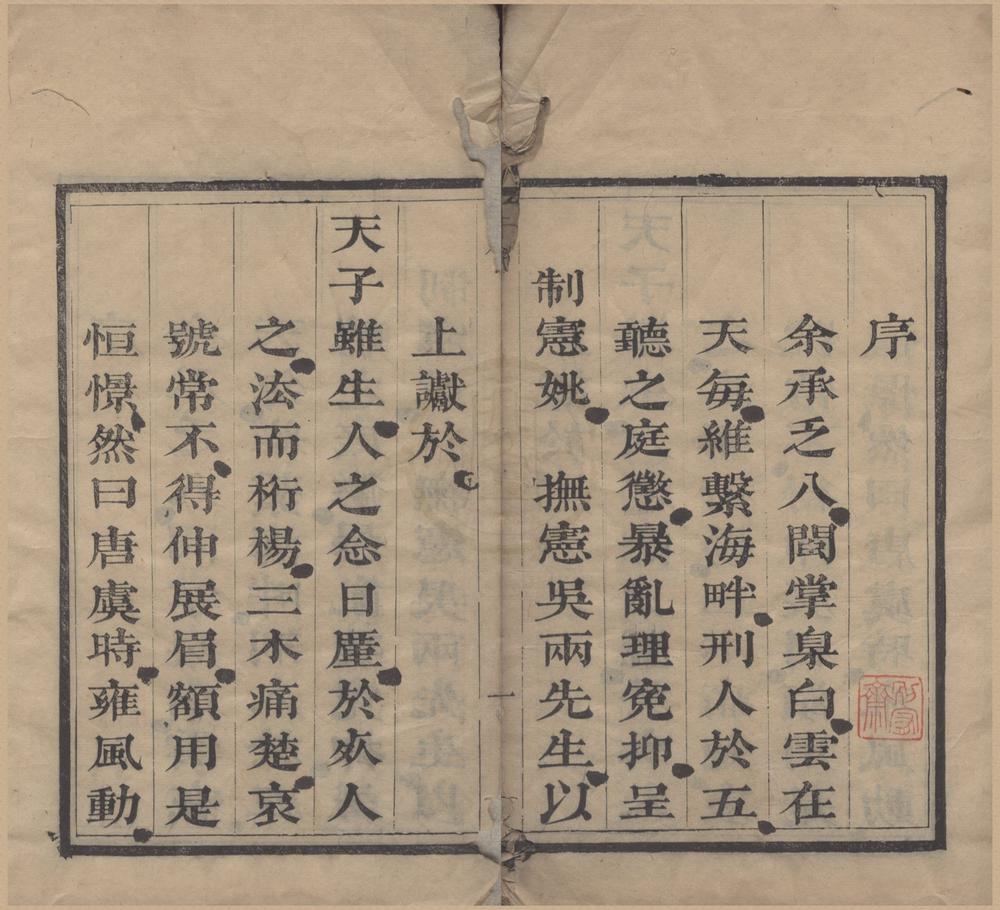 序
余承乏八閩掌臬白雲在
天每維繫海畔刑人於五
聽之庭懲暴亂理寃抑呈
制憲姚　撫憲吳兩先生以
上讞於
天子雖生人之念日廑於灾人
之法而桁楊三木痛楚哀
號常不得伸展眉額用是
恒憬然曰唐虞時雍風動
一